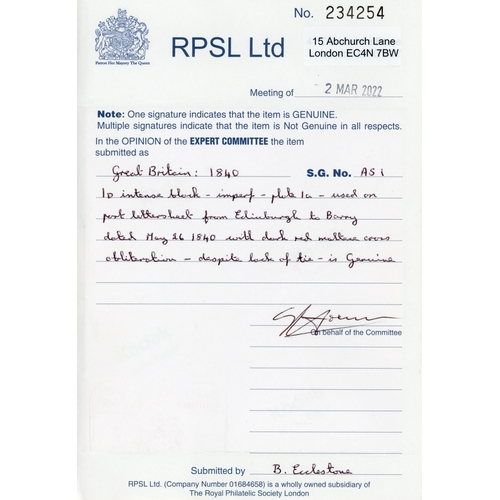 No. 234254
Patron Her Majesty The Queen
RPSL Ltd
15 Abchurch Lane
London EC4N 7BW
Meeting of 2 MAR 2022
Note: One signature indicates that the item is GENUINE.
Multiple signatures indicate that the item is Not Genuine in all respects.
In the OPINION of the EXPERT COMMITTEE the item
submitted as
Great Britain: 1840 S.G. No. AS1
1D intense black - imperf - plate 1a - used on
part lettersheet from Edinburgh to Barry
dated May 26 1840 with dark red maltese cross
obliteration - despite lack of tie - is Genuine
On behalf of the Committee
Submitted by B. Ecclestone
RPSL Ltd. (Company Number 01684658) is a wholly owned subsidiary of
The Royal Philatelic Society London